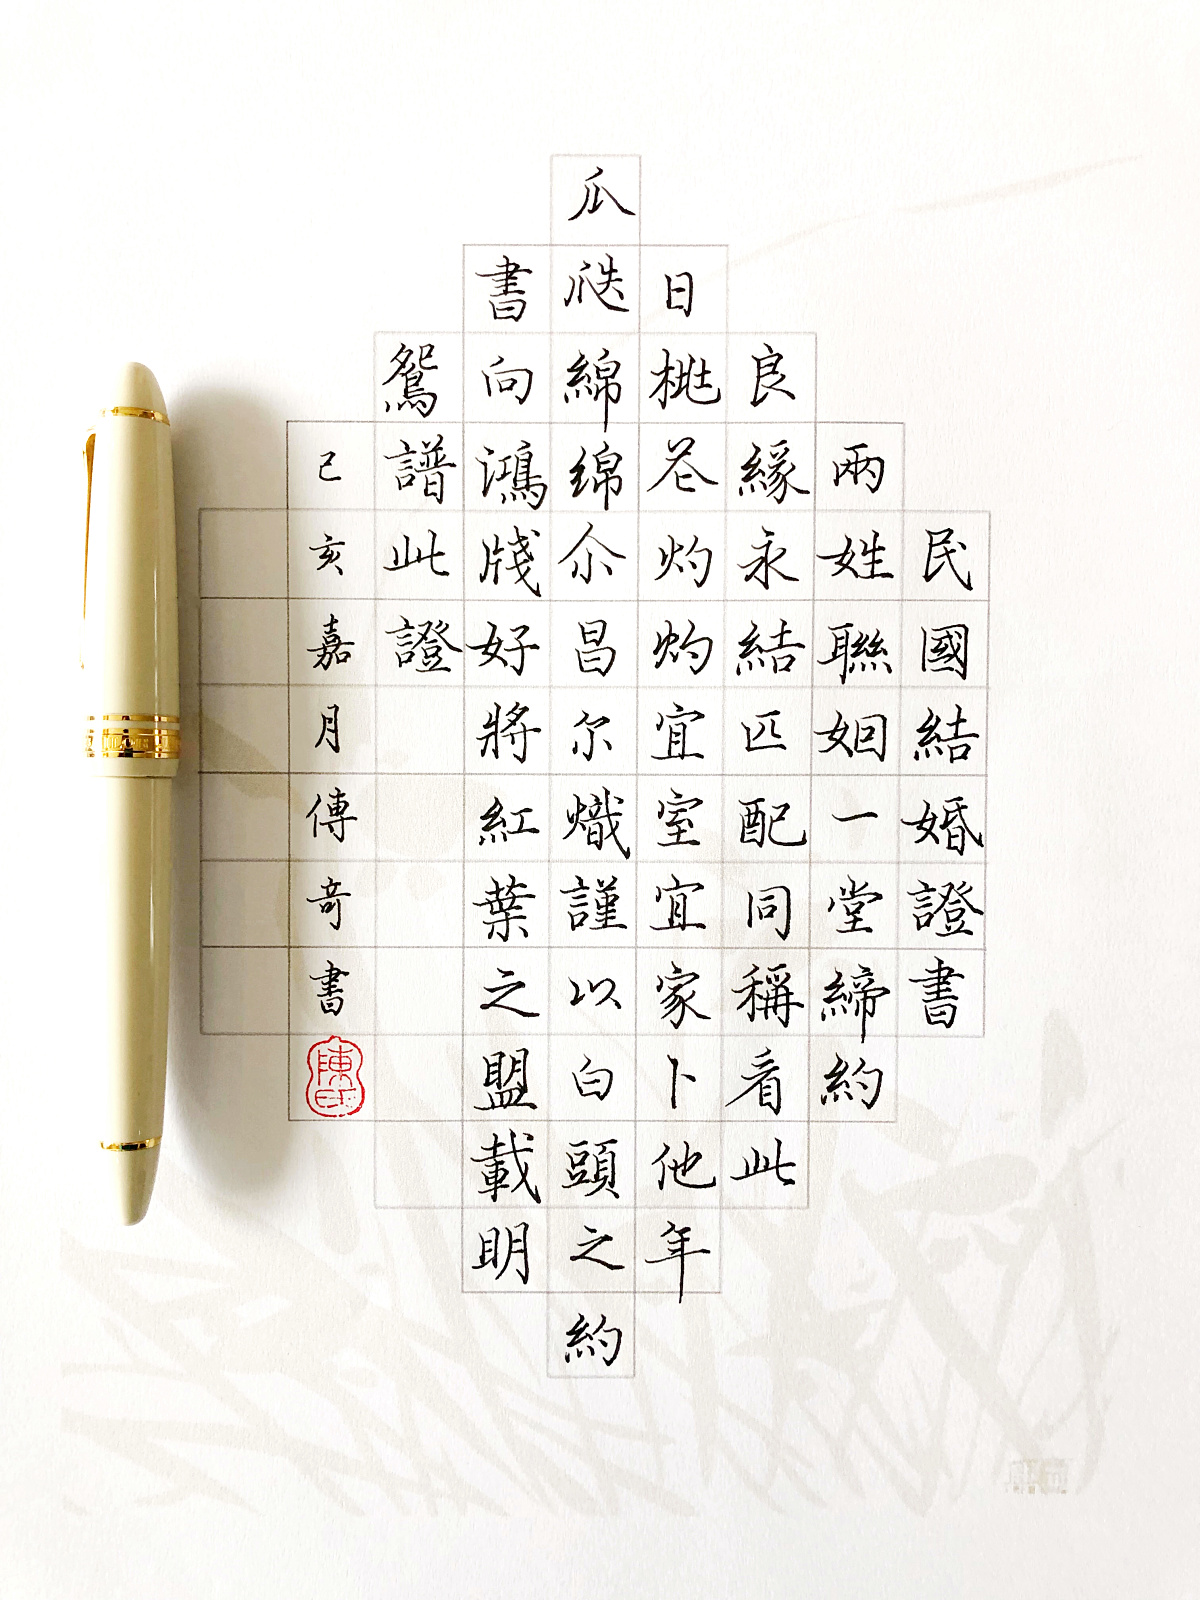 民國結婚證書
兩姓聯姻一堂締約
良緣永結匹配同稱看此
日桃花灼灼宜室宜家卜他年
瓜瓞綿綿尒昌尔熾謹以白頭之約
書向鴻牋好將紅葉之盟載明
鴛譜此證
己亥嘉月傳奇書
陳氏